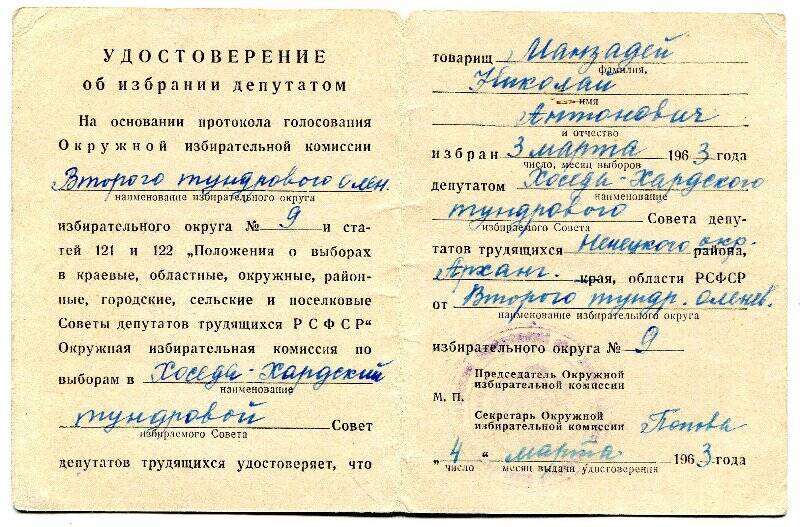 УДОСТОВЕРЕНИЕ
об избрании депутатом
На основании протокола голосования
Окружной избирательной комиссии
Второго тундрового Олен.
наименование избирательного округа
избирательного округа № 9 и ста-
тей 121 и 122 „Положения о выборах
в краевые, областные, окружные, район-
ные, городские, сельские и поселковые
Советы депутатов трудящихся РСФСР“
Окружная избирательная комиссия по
выборам в Хоседа-Хардский
наименование
тундровой Совет
избираемого Совета
депутатов трудящихся удостоверяет, что
товарищ
фамилия,
Николай
имя
Антонович
и отчество
избран 3 марта 1963 года
число, месяц выборов
депутатом Хоседа-Хардского
наименование
тундрового Совета депу-
избираемого Совета
татов трудящихся Ненецкого окр. района,
Арханг. края, области РСФСР
от Второго тундр. оленев.
наименование избирательного округа
избирательного округа № 9
Председатель Окружной
избирательной комиссии
М. П.
Секретарь Окружной
избирательной комиссии Попова
„4“ марта 1963 года
число месяц выдачи удостоверения